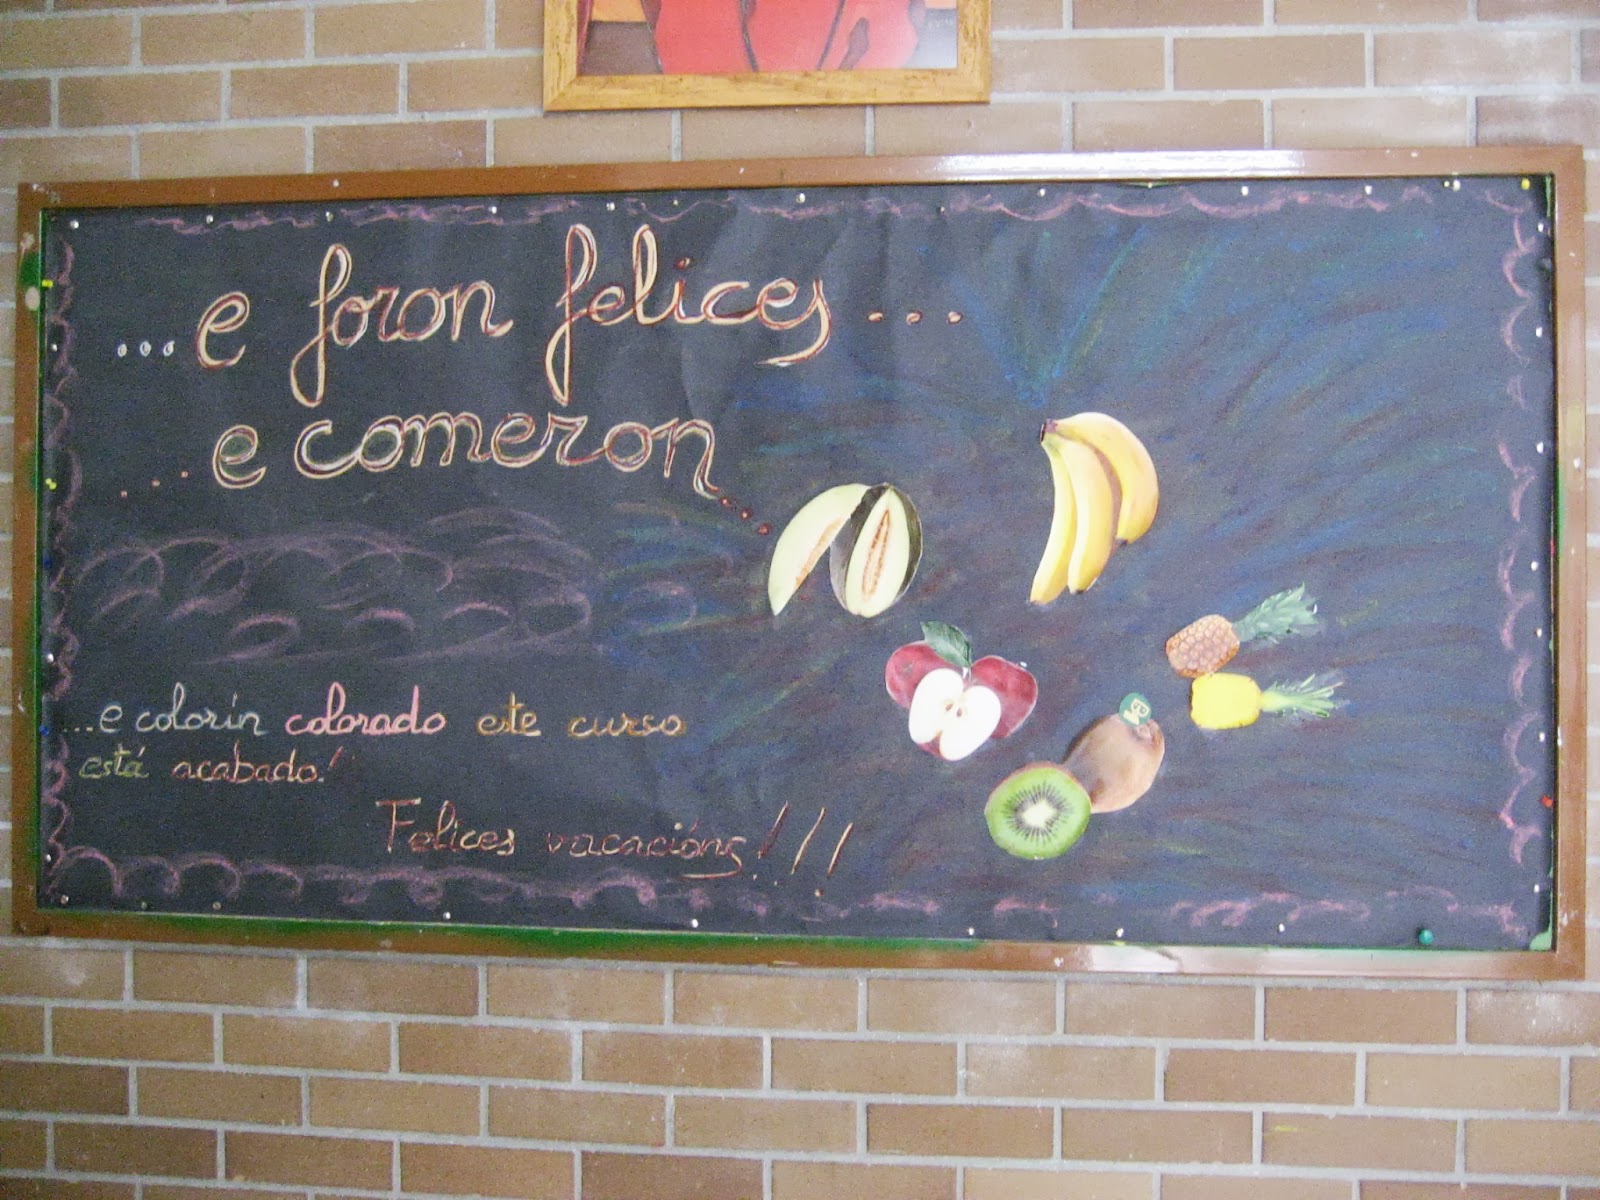 ...e foron felices...
...e comeron...
...e colorín colorado este curso
está acabado!
Felices vacacións!!!